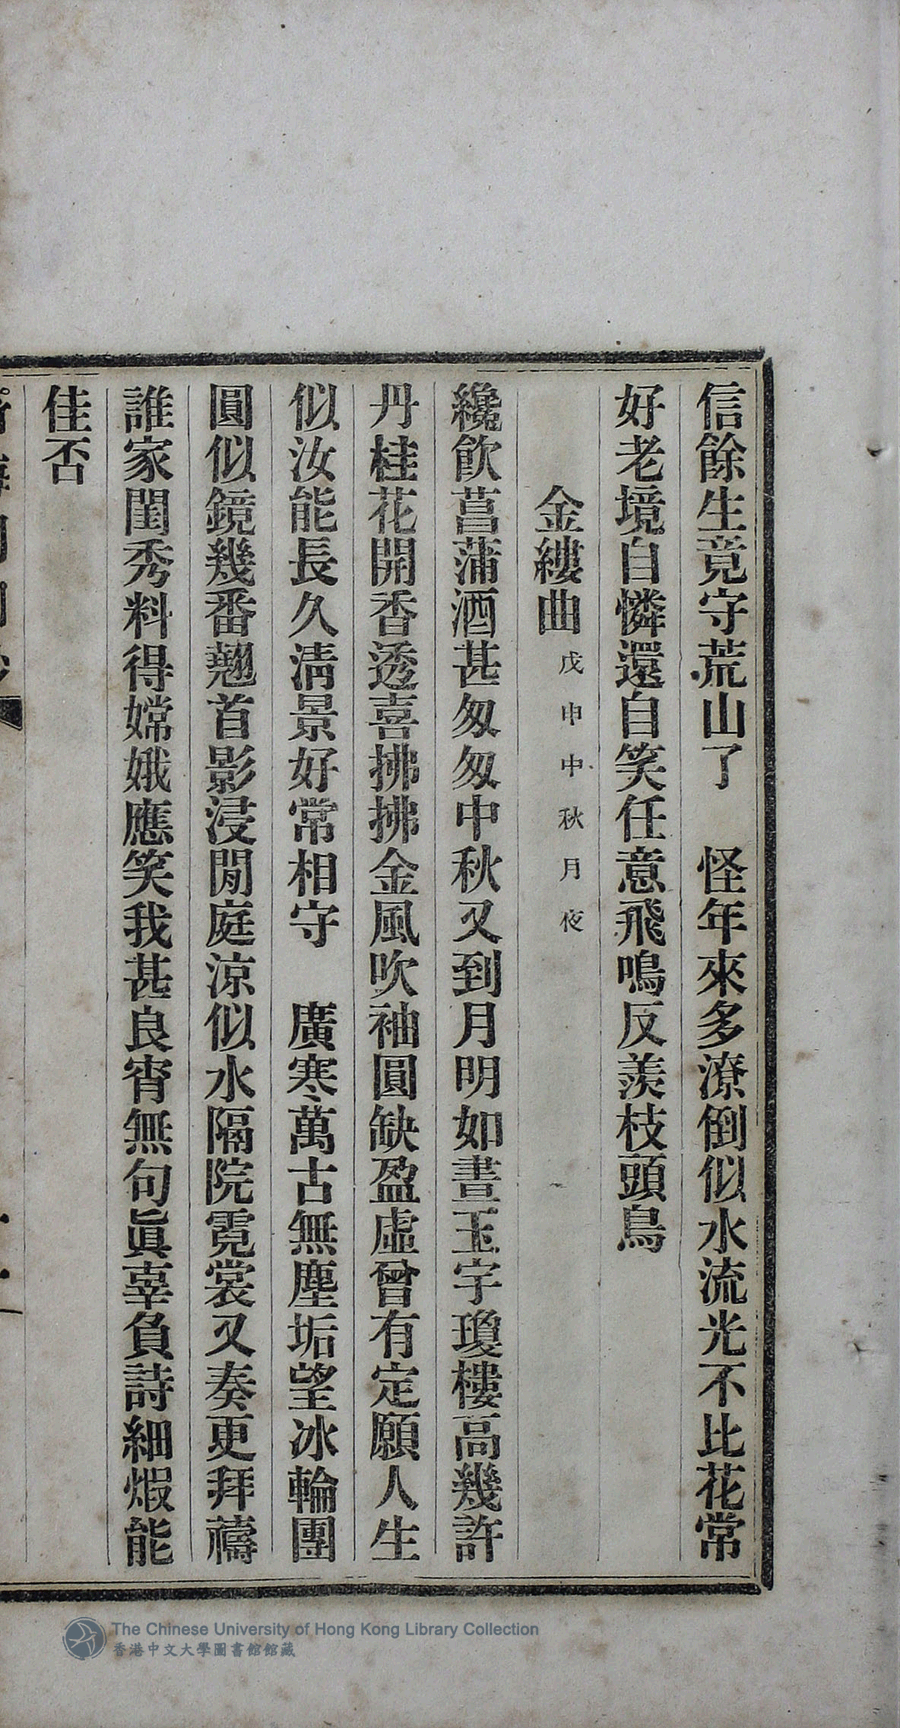 信餘生竟守荒山了　怪年來多潦倒似水流光不比花常
好老境自憐還自笑任意飛鳴反羨枝頭鳥
金縷曲戊申中秋月夜
纔飲菖蒲酒甚匆匆中秋又到月明如晝玉宇瓊樓高幾許
丹桂花開香透喜拂拂金風吹袖圓缺盈虛曾有定願人生
似汝能長久清景好常相守　廣寒萬古無塵垢望冰輪團
圓似鏡幾番翹首影浸閒庭涼似水隔院霓裳又奏更拜禱
誰家閨秀料得嫦娥應笑我甚良宵無句眞辜負詩細煆能
佳否
The Chinese University of Hong Kong Library Collection
香港中文大學圖書館館藏